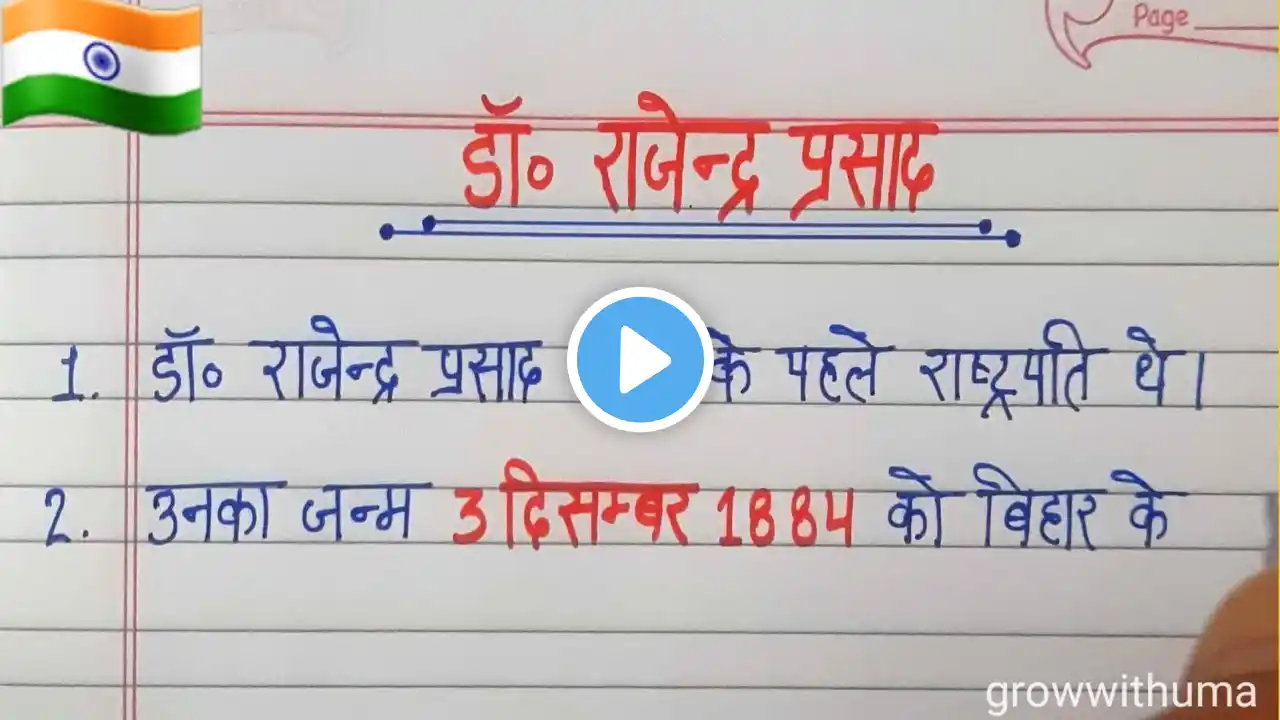 Page
डॉ० राजेन्द्र प्रसाद
1. डॉ० राजेन्द्र प्रसाद के पहले राष्ट्रपति थे।
2. उनका जन्म 3 दिसम्बर 1884 को बिहार के
growwithuma